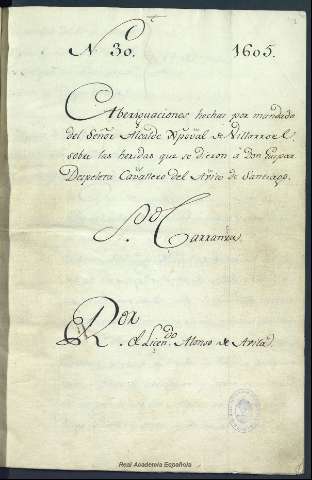 N. 30. 1605.
Aberiguaciones hechas por mandado
del Señor Alcalde Xpoval de Villarroel
sobre las heridas que se dieron á Don Gaspar
Despeleta Cavallero del Avito de Santiago.
S.no Carranza
Ror
El Licen.do Alonso de Avila
Real Academia Española